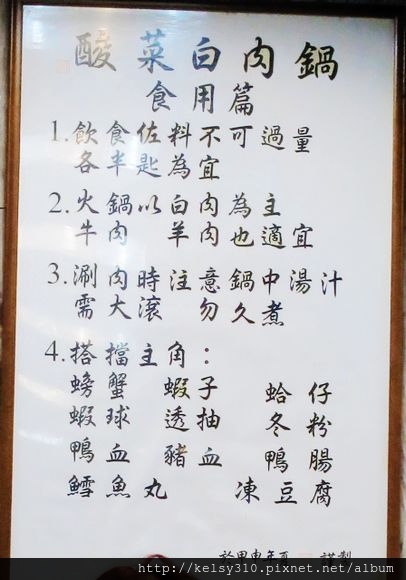 酸菜白肉鍋
食用篇
1.飲食佐料不可過量
各半匙為宜
2.火鍋以白肉為主
牛肉 羊肉也適宜
3.涮肉時注意鍋中湯汁
需大滾 勿久煮
4.搭擋主角：
螃蟹 蝦子 蛤仔
蝦球 透抽 冬粉
鴨血 豬血 鴨腸
鱈魚丸 凍豆腐
謹製
http://kelsy310.pixnet.net/album